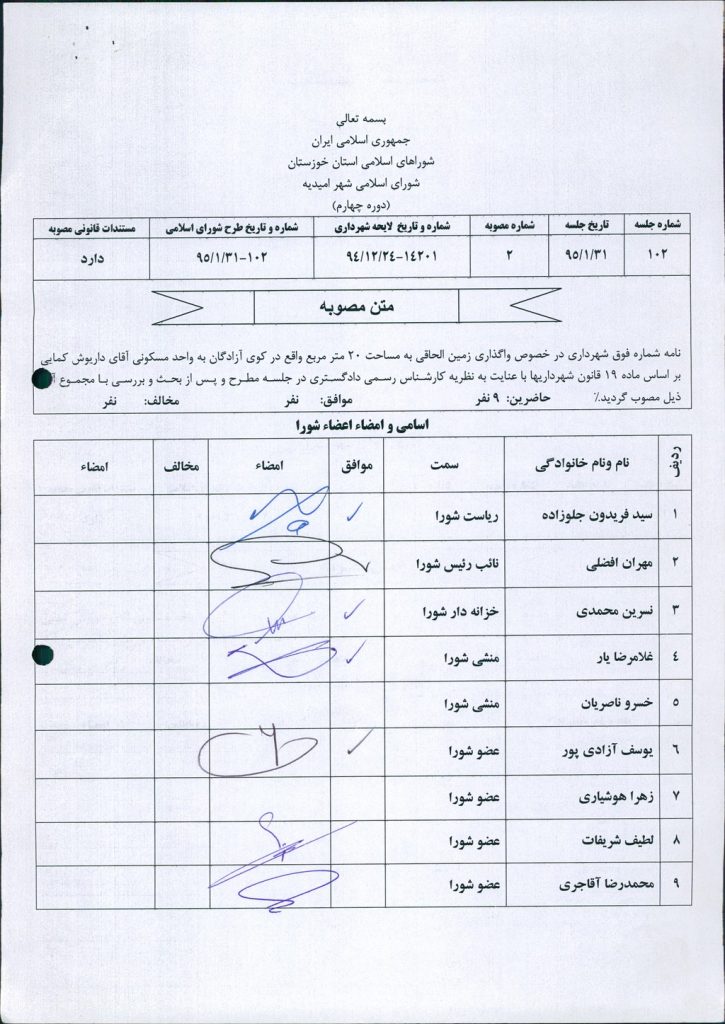 بسمه تعالی
جمهوری اسلامی ایران
شوراهای اسلامی استان خوزستان
شورای اسلامی شهر امیدیه
(دوره چهارم)
شماره جلسه تاریخ جلسه شماره مصوبه شماره و تاریخ لایحه شهرداری شماره و تاریخ طرح شورای اسلامی مستندات قانونی مصوبه
۱۰۲ ۹۵/۱/۳۱ ۲ ۹۴/۱۲/۲۴-۱۴۲۰۱ ۹۵/۱/۳۱-۱۰۲ دارد
متن مصوبه
نامه شماره فوق شهرداری در خصوص واگذاری زمین الحاقی به مساحت ۲۰ متر مربع واقع در کوی آزادگان به واحد مسکونی آقای داریوش کمایی
بر اساس ماده ۱۹ قانون شهرداریها با عنایت به نظریه کارشناس رسمی دادگستری در جلسه مطرح و پس از بحث و بررسی با مجموع
ذیل مصوب گردید.٪ حاضرین: ۹ نفر موافق: نفر مخالف: نفر
اسامی و امضاء اعضاء شورا
ردیف نام ونام خانوادگی سمت موافق امضاء مخالف امضاء
۱ سید فریدون جلوزاده ریاست شورا
۲ مهران افضلی نائب رئیس شورا
۳ نسرین محمدی خزانه دار شورا
۴ غلامرضا یار منشی شورا
۵ خسرو ناصریان منشی شورا
۶ یوسف آزادی پور عضو شورا
۷ زهرا هوشیاری عضو شورا
۸ لطیف شریفات عضو شورا
۹ محمدرضا آقاجری عضو شورا